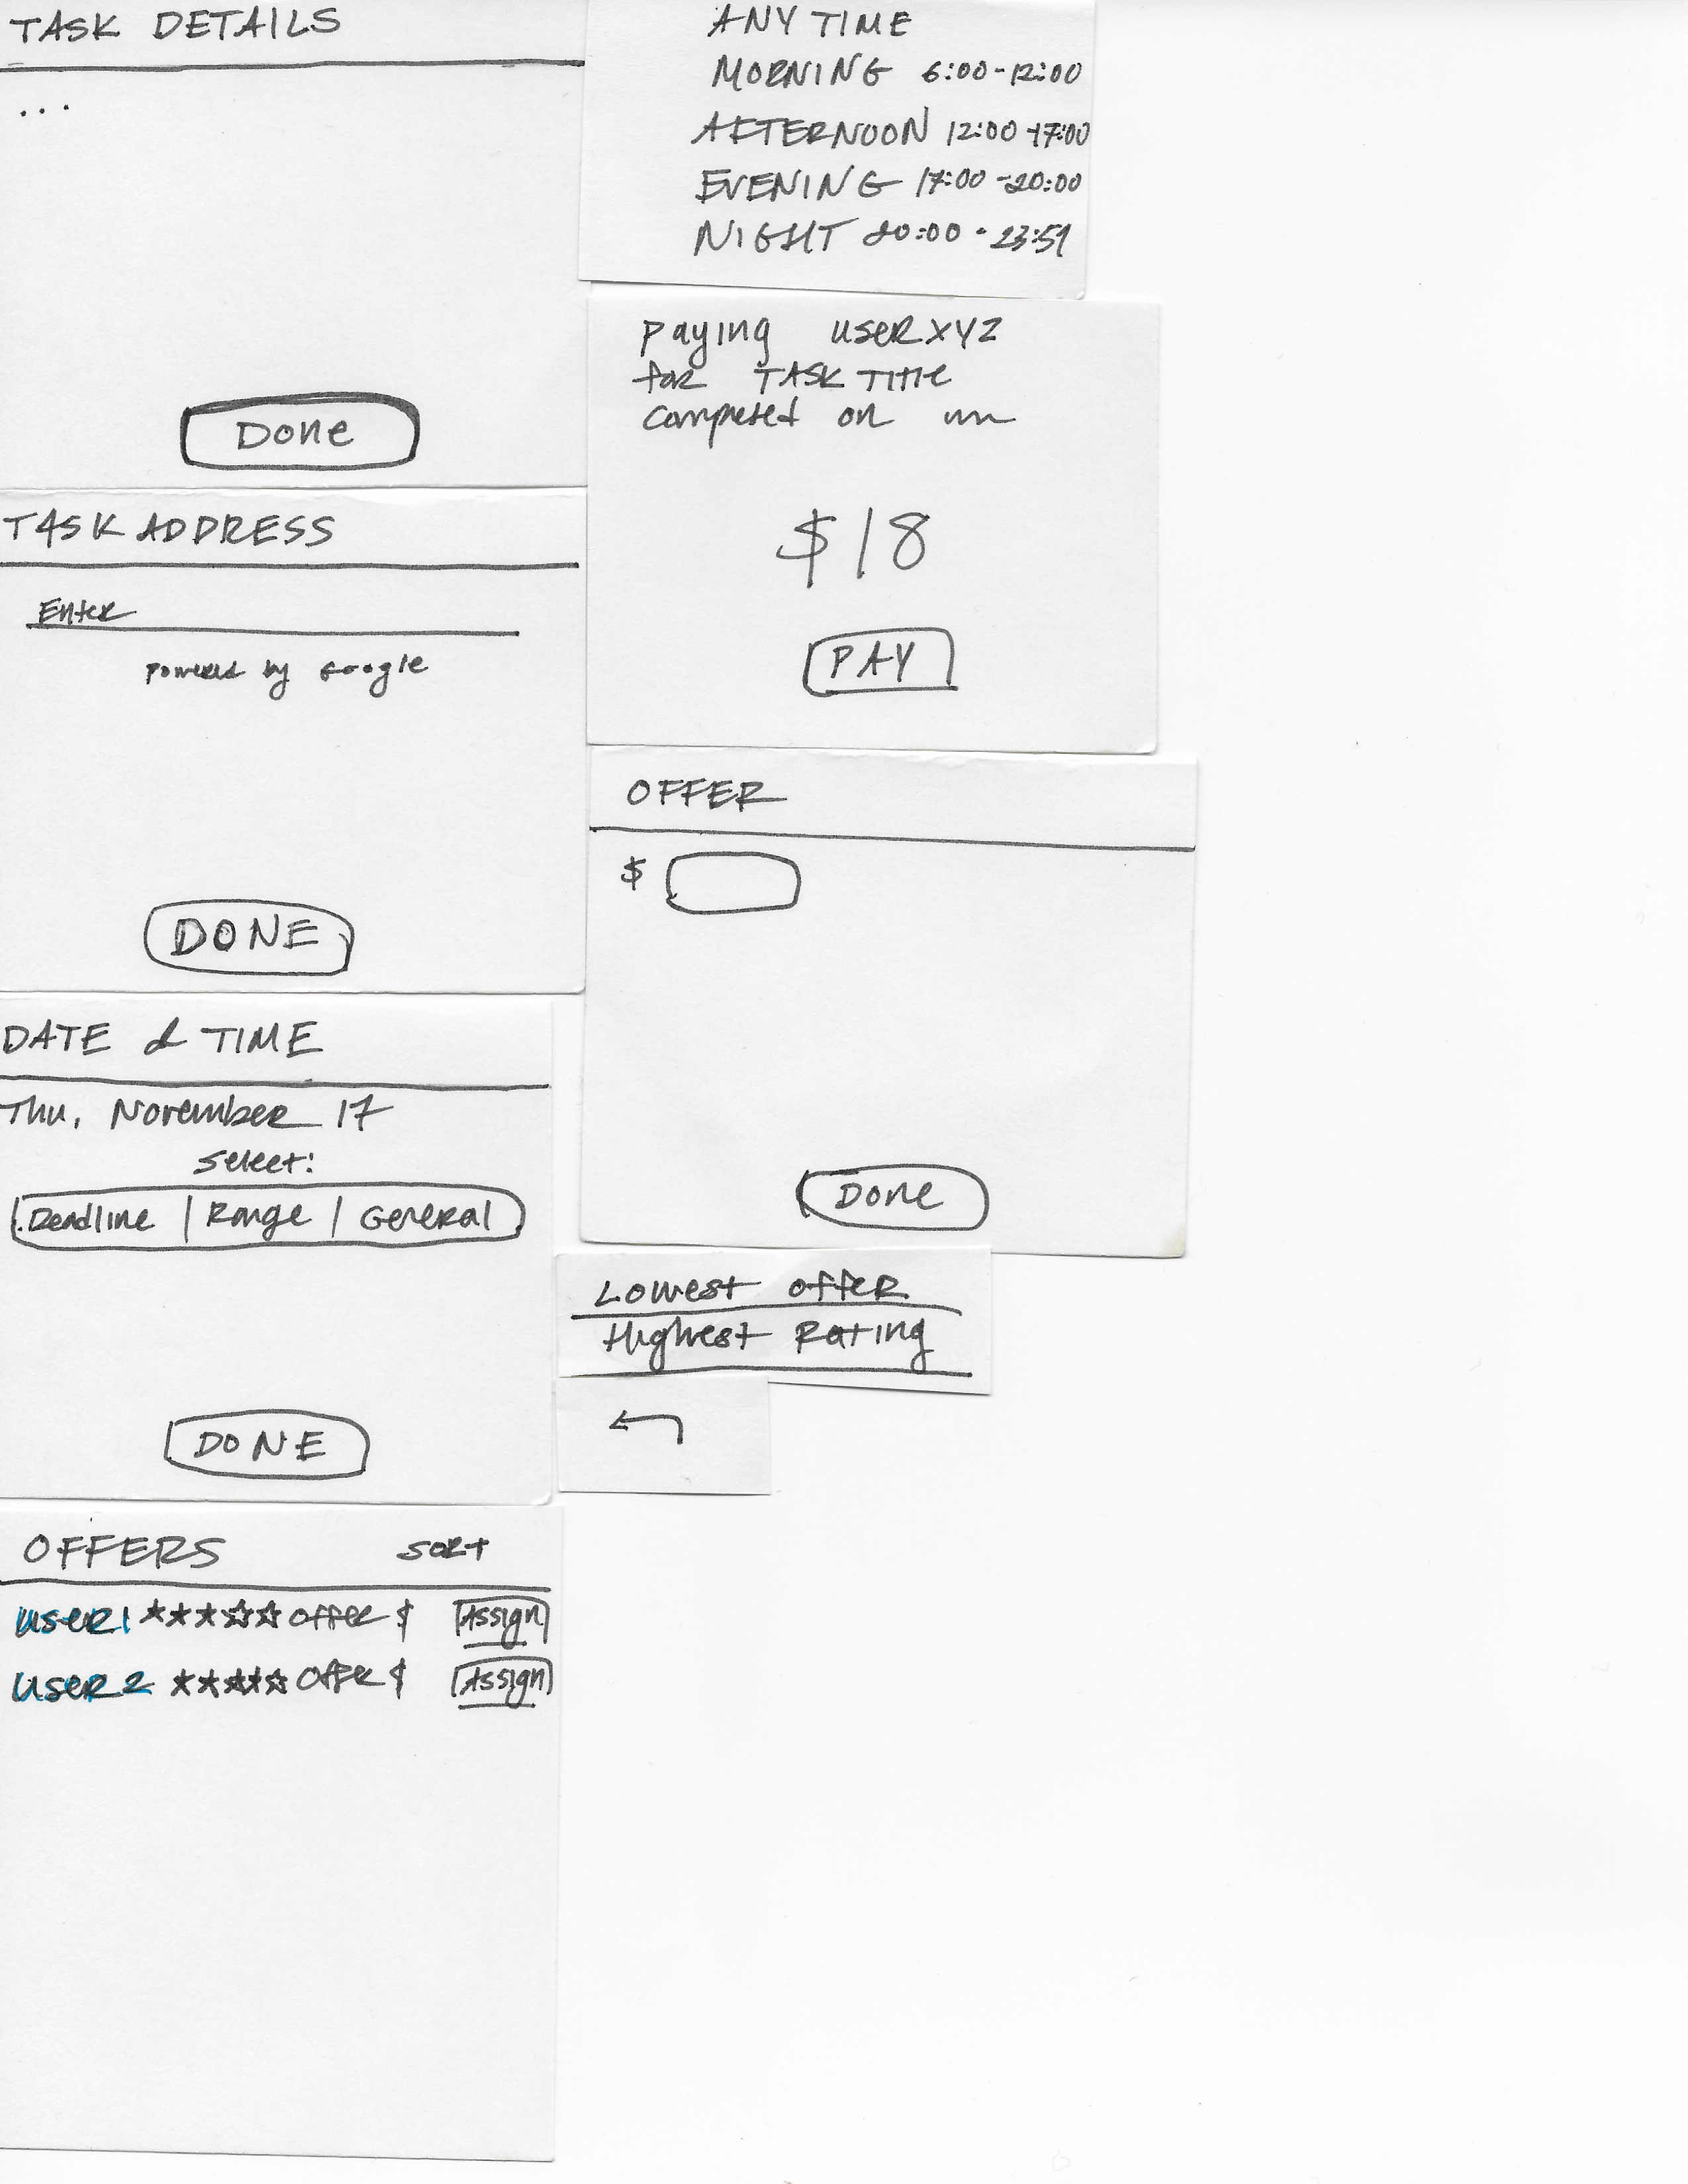 TASK DETAILS
...
Done
TASK ADDRESS
Enter
powered by Google
DONE
DATE & TIME
Thu, November 17
select:
Deadline | Range | General
DONE
OFFERS SORT
user1 ★★★☆☆ offer $ Assign
user2 ★★★★☆ offer $ Assign
ANY TIME
MORNING 6:00-12:00
AFTERNOON 12:00-17:00
EVENING 17:00-20:00
NIGHT 20:00-23:59
paying userXYZ
for TASK Title
completed on
$18
PAY
OFFER
$
Done
Lowest offer
Highest Rating